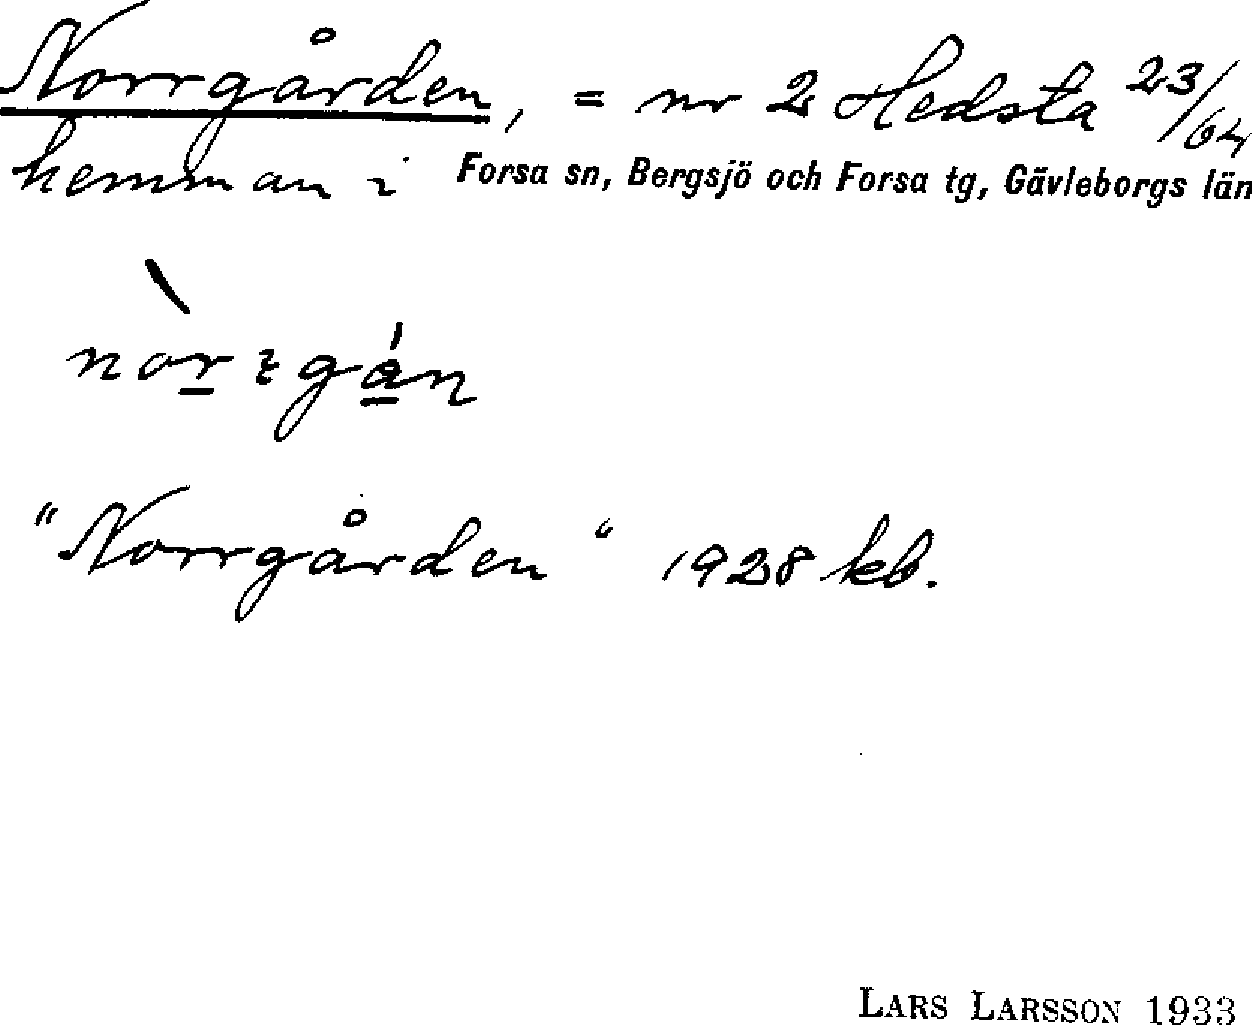 Norrgården, = nr 2 Hedsta 23/64
hemman i Forsa sn, Bergsjö och Forsa tg, Gävleborgs län
"Norrgården" 1928 kb.
LARS LARSSON 1933